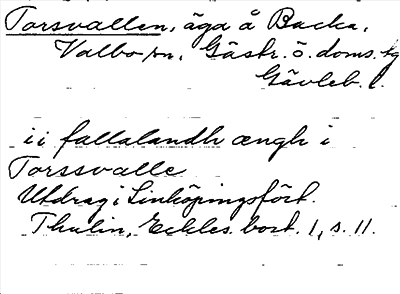 Torsvallen, äga å Backa,
Valbo sn, Gästr. ö. doms. tg
Gävleb. l.
i i fallalandh ængh i
Torssvalle
Utdrag i Linköpingsfört.
Thulin, Eckles. bost. 1, s. 11.